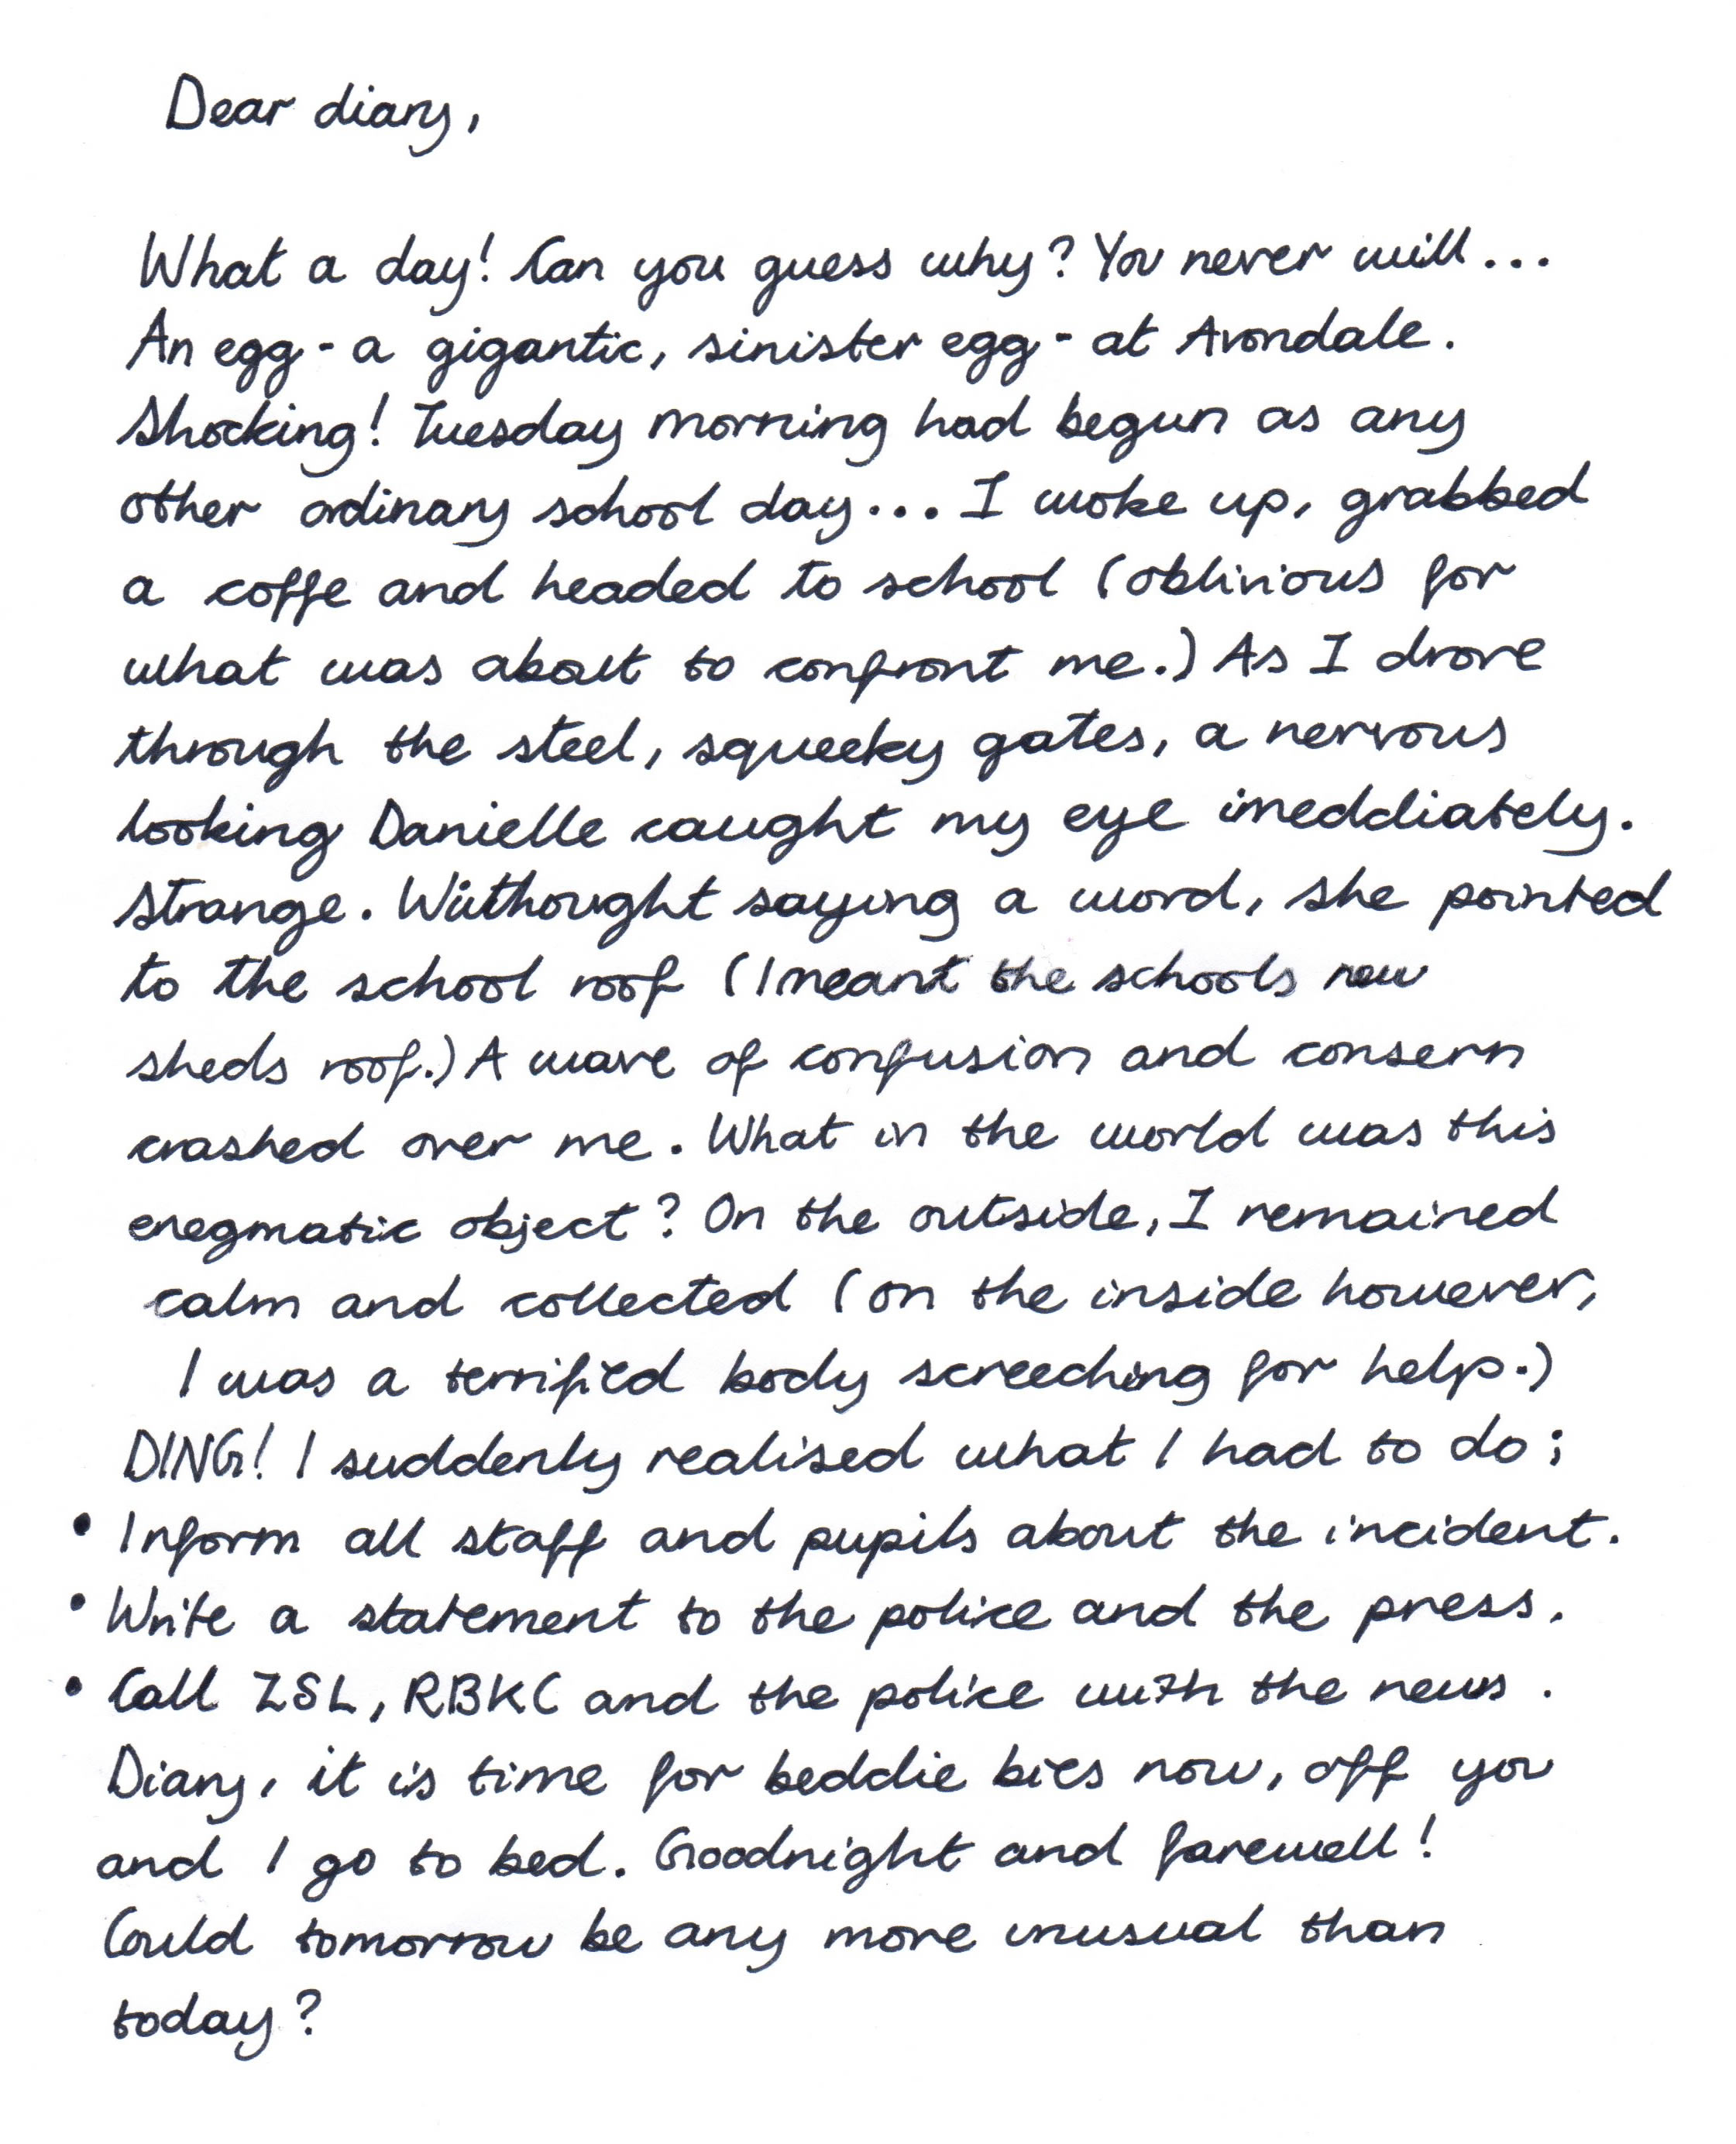 Dear diary,
What a day! Can you guess why? You never will...
An egg - a gigantic, sinister egg - at Avondale.
Shocking! Tuesday morning had begun as any
other ordinary school day... I woke up, grabbed
a coffe and headed to school (oblivious for
what was about to confront me.) As I drove
through the steel, squeeky gates, a nervous
looking Danielle caught my eye imeddiately.
Strange. Withought saying a word, she pointed
to the school roof (I meant the schools new
sheds roof.) A wave of confusion and consern
crashed over me. What in the world was this
enegmatic object? On the outside, I remained
calm and collected (on the inside however,
I was a terrified body screeching for help.)
DING! I suddenly realised what I had to do;
• Inform all staff and pupils about the incident.
• Write a statement to the police and the press.
• Call ZSL, RBKC and the police with the news.
Diary, it is time for beddie bies now, off you
and I go to bed. Goodnight and farewell!
Could tomorrow be any more unusual than
today?